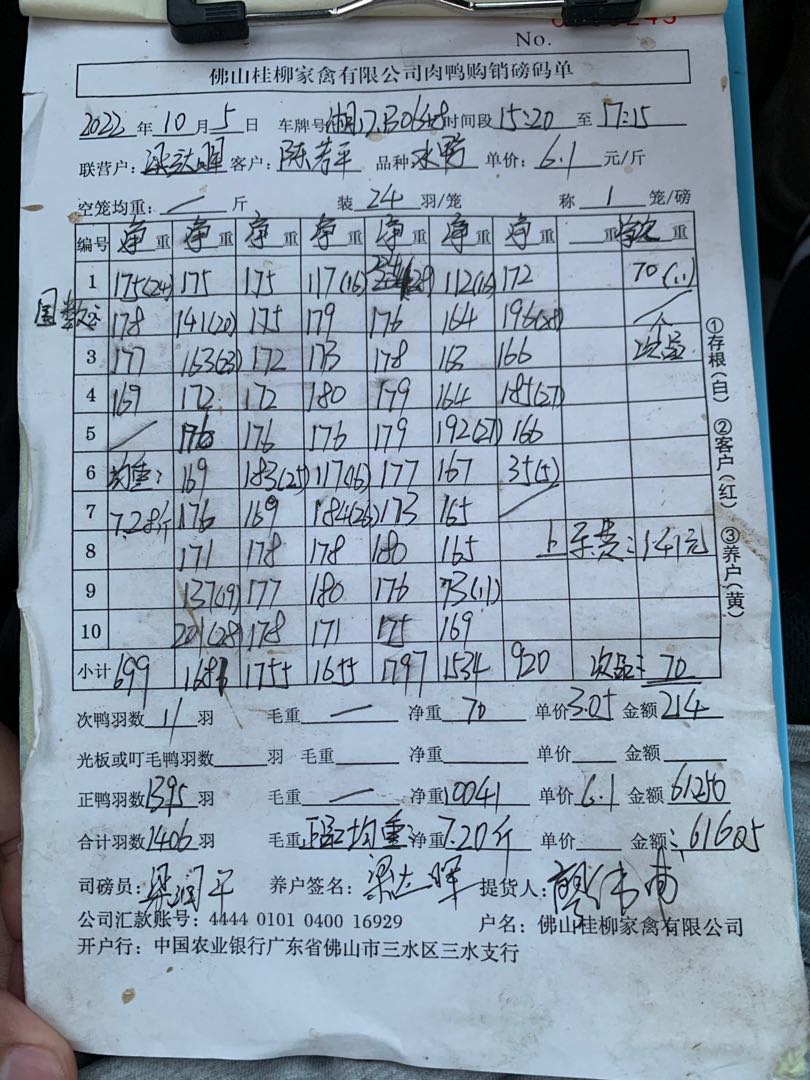 No.
佛山桂柳家禽有限公司肉鸭购销磅码单
2022 年 10 月 5 日 车牌号 时间段 15:20 至 17:15
联营户: 客户: 陈若平 品种 水鸭 单价: 6.1 元/斤
空笼均重: / 斤 装 24 羽/笼 称 1 笼/磅
编号 净重 净重 净重 净重 净重 净重 净重 重 次 重
1 175(24) 175 175 117(16) 112(16) 172 70(11)
2 178 141(20) 175 179 176 164 196(28) /
3 177 163(23) 172 173 178 163 166 次品
4 169 172 172 180 179 164 185(27)
5 / 176 176 176 179 192(27) 166
6 均重: 169 183(25) 117(16) 177 167 35(5)
7 7.28斤 176 169 184(26) 173 165 /
8 171 178 178 180 165 上车费: 141元
9 137(19) 177 180 176 73(11)
10 201(28) 178 171 175 169
小计 699 1681 1755 1655 1797 1534 920 次品: 70
次鸭羽数 11 羽 毛重 / 净重 70 单价 3.05 金额 214
光板或叮毛鸭羽数 羽 毛重 净重 单价 金额
正鸭羽数 1395 羽 毛重 / 净重 10041 单价 6.1 金额 61250
合计羽数 1406 羽 毛重 均重: 净重 7.20斤 单价 金额: 61605
司磅员: 养户签名: 梁达晖 提货人:
公司汇款账号: 4444 0101 0400 16929 户名: 佛山桂柳家禽有限公司
开户行: 中国农业银行广东省佛山市三水区三水支行
①存根(白) ②客户(红) ③养户(黄)